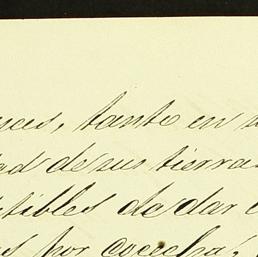 nces, tanto en
ad de sus tierras
tibles de dar
por cosecha,